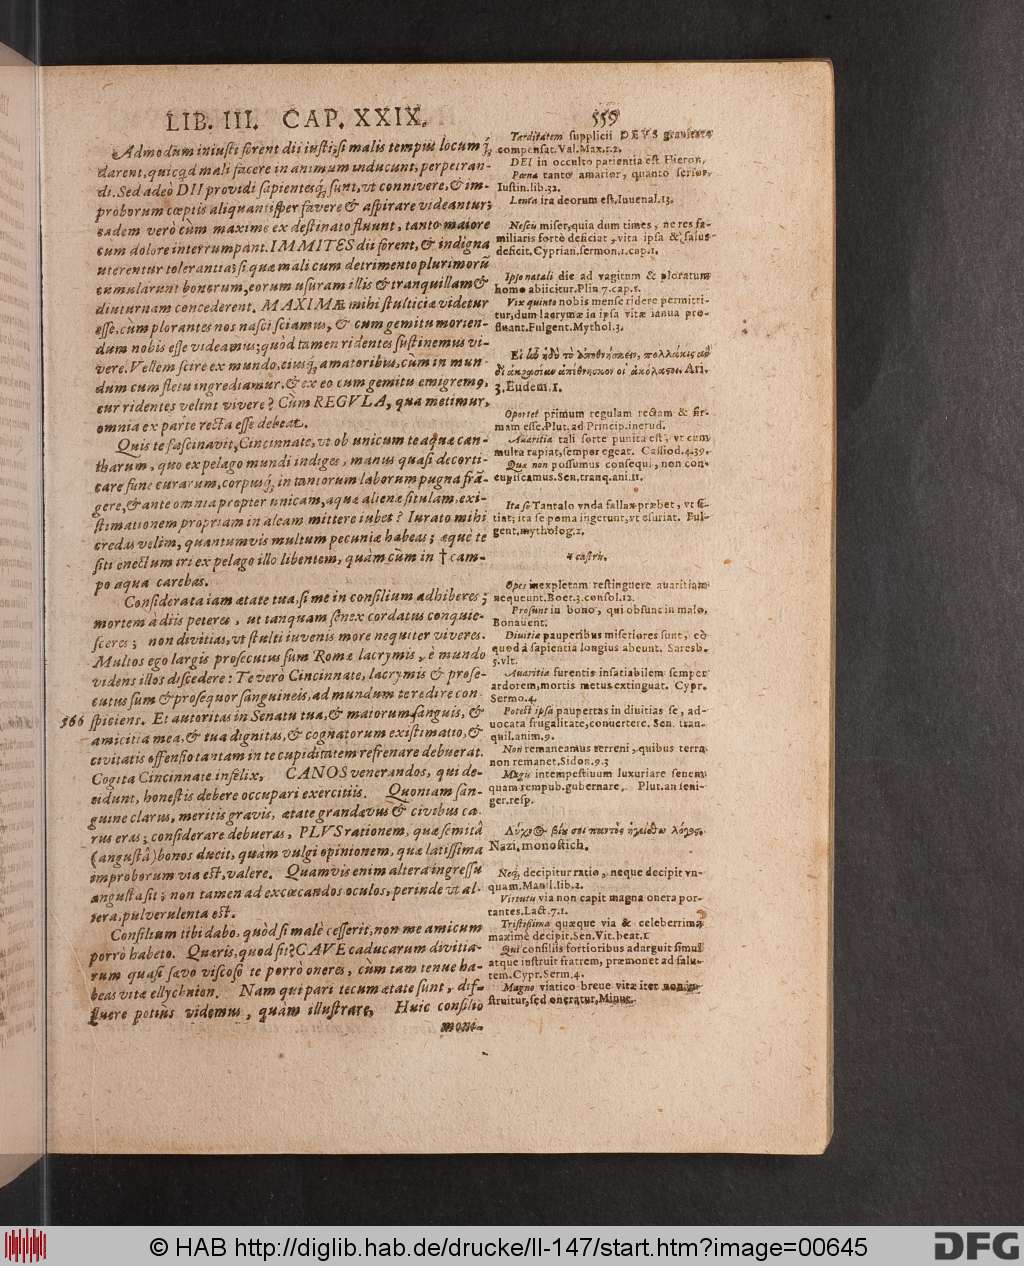 LIB. III. CAP. XXIX. 559
Admodum iniusti forent dii iusti, si malis tempus locumq́;
darent, quicqd mali facere in animum inducunt, perpetran-
di. Sed adeò DII providi sapientesq́; sunt, ut connivere, & im-
proborum cœptis aliquantisper favere & aspirare videantur;
eadem verò cùm maxime ex destinato fluunt, tanto maiore
cum dolore interrumpant. IMMITES dii forent, & indigna
uterentur tolerantia; si quæ mali cum detrimento plurimorũ
cumularunt bonorum, eorum usuram illis & tranquillam &
diuturnam concederent. MAXIMÆ mihi stulticiæ videtur
esse, cùm plorantes nos nasci sciamus, & cum gemitu morien-
dum nobis esse videamus; quòd tamen ridentes sustinemus vi-
vere. Vellem scire ex mundo, eiusq́; amatoribus, cùm in mun-
dum cum fletu ingrediamur, & ex eo cum gemitu emigremꝰ,
cur ridentes velint vivere? Cùm REGVLA, qua metimur,
omnia ex parte recta esse debeat.
Quis te fascinavit, Cincinnate, ut ob unicum te aquæ can-
tharum, quo ex pelago mundi indiges, manus quasi decorti-
care fune curarum, corpusq́; in tantorum laborum pugna frã-
gere, & ante omnia propter unicam, aquæ alienæ situlam, exi-
stimationem propriam in aleam mittere iubet? Iurato mihi
credas velim, quantumvis multum pecuniæ habeas; æquè te
siti enectum iri ex pelago illo libentem, quàm cùm in † cam-
po aqua carebas.
Considerata iam ætate tua, si me in consilium adhiberes;
mortem à diis peteres, ut tanquam senex cordatus conquie-
sceres; non divitias, vt stulti iuvenis more nequiter viveres.
Multos ego largis prosecutus sum Romæ lacrymis, è mundo
videns illos discedere: Te verò Cincinnate, lacrymis & prose-
cutus sum & prosequor sanguineis, ad mundum te redire con
366 spiciens. Et autoritas in Senatu tua, & maiorum sanguis, &
amicitia mea, & tua dignitas, & cognatorum existimatio, &
civitatis offensio tantam in te cupiditatem refrenare debuerat.
Cogita Cincinnate infelix, CANOS venerandos, qui de-
cidunt, honestis debere occupari exercitiis. Quoniam san-
guine clarus, meritis gravis, ætate grandævus & civibus ca-
rus eras; considerare debueras, PLVS rationem, quæ semitâ
(angustâ) bonos ducit, quàm vulgi opinionem, quæ latissima
improborum via est, valere. Quamvis enim altera ingressu
angusta sit; non tamen ad excæcandos oculos, perinde ut al-
tera, pulverulenta est.
Consilium tibi dabo, quòd si malè cesserit, non me amicum
porrò habeto. Quæris, quod sit? CAVE caducarum divitia-
rum quasi sævo viscoso te porrò oneres, cùm tam tenue ha-
beas vitæ ellychnion. Nam qui pari tecum ætate sunt, dif-
fluere potius videmus, quàm illustrare. Huic consilio
moni-
Tarditatem supplicii DEVS gravitate
compensat. Val. Max. 1.2.
DEI in occulto patientia est Hieron.
Pœna tanto amarior, quanto serior.
Iustin. lib. 32.
Lenta ira deorum est. Iuuenal. 13.
Nescis miser, quia dum times, ne res fa-
miliaris fortè deficiat, vita ipsa & salus
deficit. Cyprian. sermon. 1. cap. 1.
Ipso natali die ad vagitum & ploratum
homo abiicitur. Plin 7. cap. 1.
Vix quinto nobis mense ridere permitti-
tur, dum lacrymæ in ipsa vitæ ianua pro-
fluant. Fulgent. Mythol. 3.
Ari.
3. Eudem. 1.
Oportet primum regulam rectam & fir-
mam esse. Plut. ad Princip. inerud.
Auaritia tali sorte punita est, vt cum
multa rapiat, semper egeat. Cassiod. 4.39.
Quæ non possumus consequi, non con-
cupiscamus. Sen. tranq. ani. 11.
Ita se Tantalo vnda fallax præbet, vt si-
tiat; ita se poma ingerunt, vt esuriat. Ful-
gent. mytholog. 2.
castris.
Opes inexpletam restinguere auaritiam
nequeunt. Boet. 3. consol. 12.
Prosunt in bono, qui obsunt in malo.
Bonauent.
Diuitiæ pauperibus miseriores sunt, eò
quod à sapientia longius abeunt. Saresb.
5. vlt.
Auaritiæ furentis insatiabilem semper
ardorem, mortis metus extinguat. Cypr.
Sermo. 4.
Potest ipsa paupertas in diuitias se, ad-
uocata frugalitate, conuertere. Sen. tran-
quil. anim. 9.
Non remaneamus terreni, quibus terra
non remanet. Sidon. 9.3
Magis intempestiuum luxuriare senem
quam rempub. gubernare. Plut. an seni-
ger. resp.
Nazi. monostich.
Neq; decipitur ratio, neque decipit vn-
quam. Manil. lib. 2.
Virtutis via non capit magna onera por-
tantes. Lact. 7.1.
Tritissima quæque via & celeberrima
maximè decipit. Sen. Vit. beat. 1
Qui consiliis fortioribus adarguit simul
atque instruit fratrem, præmonet ad salu-
tem. Cypr. Serm. 4.
Magno viatico breue vitæ iter non in-
struitur, sed oneratur. Minuc.
© HAB http://diglib.hab.de/drucke/ll-147/start.htm?image=00645
DFG